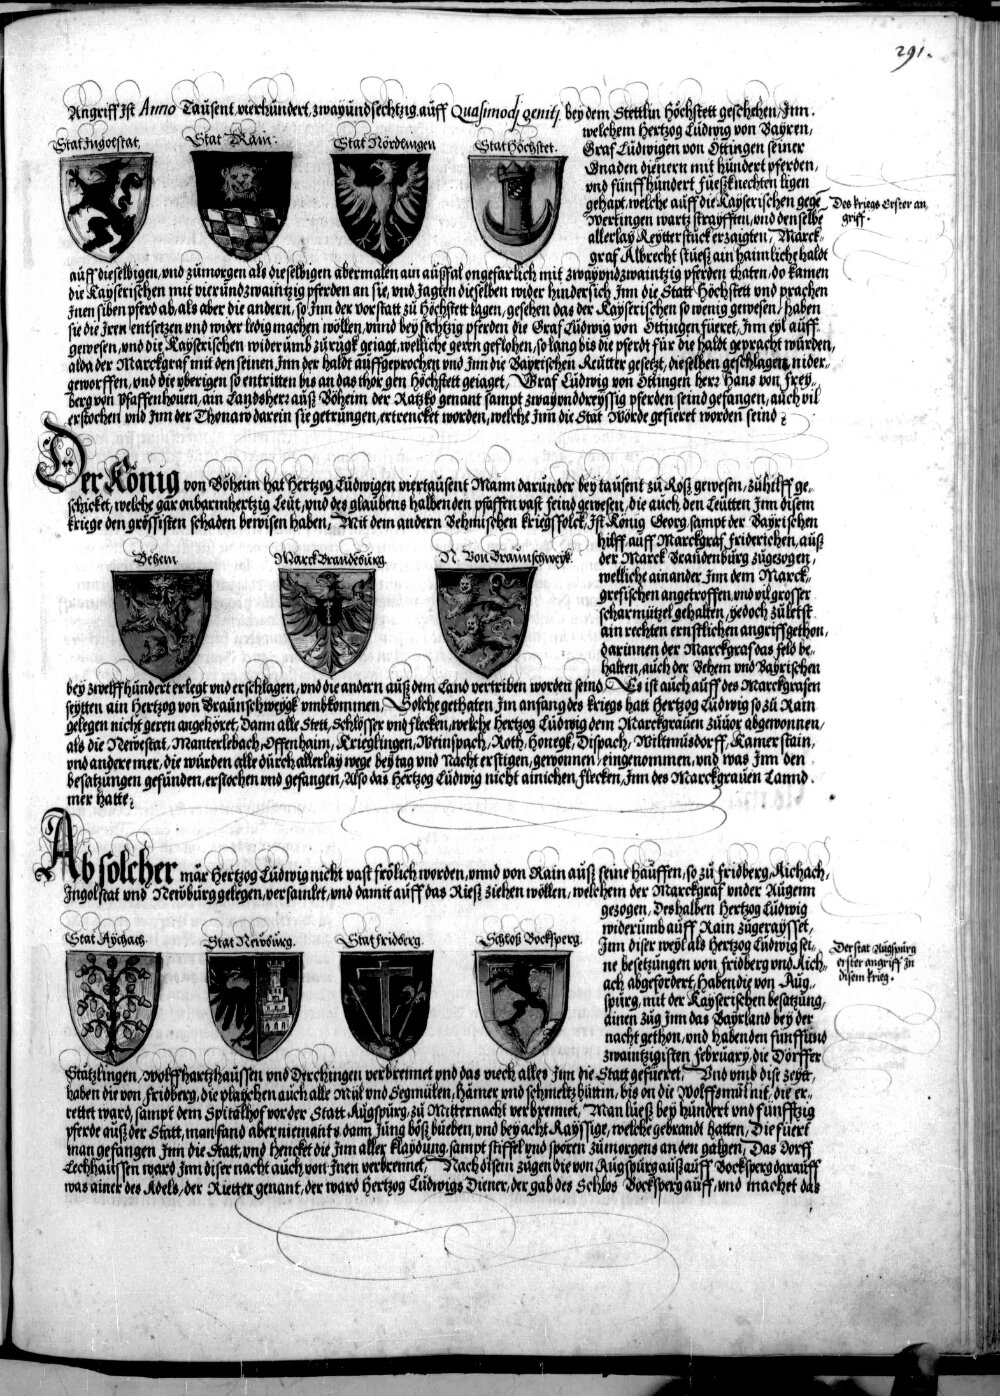 291.
Angriff Ist Anno Tausent, vierhundert, zwayundsechtzig, auff Quasimodj genitj bey dem Stettlin Höchstett geschehen, Jnn
welchem Hertzog Ludwig von Bayren,
Graf Ludwigen von Öttingen seiner
Gnaden dienern mit hundert pferden,
vnd fünffhundert fueßknechten ligen
gehapt, welche auff die Kayserischen gege
Wertingen wartz strayfften, vnd denselbe
allerlay Reytterstuck erzaigten, Marck-
graf Albrecht stüeß ain haimliche haldt
Stat Ingolstat.
Stat Rain.
Stat Nördlingen
Stat Höchstet.
Des kriegs Erster an
griff.
auff dieselbigen, vnd zümorgen als dieselbigen abermalen ain aussal ongefarlich mit zwayvndzwaintzig pferden thaten, do kamen
die Kayserischen mit vierundzwaintzig pferden an sie, vnd Jagten dieselben wider hindersich Jnn die Statt Höchstett vnd prachen
Jnen siben pferd ab, als aber die andern, so Jnn der vorstatt zu Höchstett lagen, gesehen das der Kayserischen so wenig gewesen, haben
sie die Jren entsetzen vnd wider ledig machen wöllen, vnnd bey sechtzig pferden die Graf Ludwig von Öttingen füeret, Jnn eyl auff
gewesen, vnd die Kayserischen widerumb zurugk geiagt, welliche gern geflohen, so lang bis die pferdt für die haldt gepracht würden,
alda der Marckgraf mit den seinen Jnn der haldt auffgeprochen vnd Jnn die Bayrischen Reütter gesetzt, dieselben geschlagen, nider-
geworffen, vnd die yberigen so entritten bis an das thor gen Höchstett geiaget, Graf Ludwig von Öttingen herr Hans von Frey-
berg von Pfaffenhouen, ain Landsherr auß Böheim der Ratzko genant sampt zwayvnddreyssig pferden seind gefangen, auch vil
erstochen vnd Jnn der Thonaw darein sie getrungen, ertrencket worden, welche Jnn die Stat Wörde gefieret worden seind
Der König von Böheim hat Hertzog Ludwigen viertausent Mann darunder bey tausent zu Roß gewesen, zu hilff ge-
schicket, welche gar onbarmhertzig Leut, vnd des glaubens halben den pfaffen vast feind gewesen, die auch den Leutten Jnn disem
kriege den grössisten schaden bewisen haben, Mit dem andern Behmischen kriegsfolck, Ist König Georg sampt der Bayrischen
hilff auff Marckgraf Friderichen, auß
der Marck Brandenburg zugezogen,
welliche ainander Jnn dem Marck-
grefischen angetroffen, vnd vil grosser
scharmützel gehalten, yedoch zuletst
ain rechten ernstlichen angriff gethon,
darinnen der Marckgraf das feld be-
halten, auch der Behem vnd Bayrischen
Behem
Marck Brandeburg.
N. Von Braunschweyk.
bey zwelffhundert erlegt vnd erschlagen, vnd die andern auß dem Land vertriben worden seind, Es ist auch auff des Marckgrafen
seytten ain Hertzog von Braunschweygk vmbkommen, Solche gethaten Jm anfang des kriegs hatt Hertzog Ludwig so zu Rain
gelegen nicht geren angehöret, Dann alle Stett, Schlösser vnd flecken, welche Hertzog Ludwig dem Marckgrauen zuuor abgewonnen,
als die Newestat, Manterlebach, Offenhaim, Krieglingen, Weinspach, Roth, Honegk, Dispach, Wiltmusdorff, Kamerstain,
vnd andere mer, die würden alle durch allerlay wege bey tag vnd Nacht erstigen, gewonnen, eingenommen, vnd was Jnn den
besatzungen gefunden, erstochen vnd gefangen, Also das Hertzog Ludwig nicht ainichen flecken, Jnn des Marckgrauen Lannd
mer hatte
Ab solcher mär Hertzog Ludwig nicht vast frölich worden, vnnd von Rain auß seine hauffen, so zu Fridberg, Aichach,
Ingolstat vnd Newburg gelegen, versamlet, vnd damit auff das Rieß ziehen wöllen, welchem der Marckgraf vnder Augenn
gezogen, Deshalben Hertzog Ludwig
widerumb auff Rain zugerayßet,
Jnn diser weyl als Hertzog Ludwig sei-
ne besetzungen von Fridberg vnd Aich-
ach abgefordert, haben die von Aug-
spurg, mit der Kayserischen besatzung,
ainen zug Jnn das Bayrland bey der
nacht gethon, vnd haben den funffund
zwaintzigisten february, die Dörffer
Stat Aychach.
Stat Newburg.
Stat fridberg.
Schloß Bocksperg.
Der stat Augspurg
erster angriff Jn
disem krieg.
Stätzlingen, Wolffhartzhaussen vnd Derchingen verbrennet vnd das viech alles Jnn die Statt gefüeret, Vnd vmb dise zeyt,
haben die von Fridberg, die playchen auch alle Mül vnd Segmülen, Hämer vnd schmeltzhüttin, bis on die Wolffsmül nit, die er-
rettet ward, sampt dem Spitalhof vor der Statt Augspurg, zu Mitternacht verbrennet, Man lüeß bey hundert vnd funfftzig
pferde auß der Statt, man fand aber niemants dann Jung böß bueben, vnd bey acht Rayssige, welche gebrandt hatten, Die fuert
man gefangen Jnn die Statt, vnd hencket die Jnn aller klaydung sampt stiffel vnd sporen zumorgens an den galgen, Das Dorff
Lechhaussen ward Jnn diser nacht auch von Jnen verbrennet, Nach disem zugen die von Augspurg auß auff Bocksperg darauff
was ainer des Adels, der Rietter genant, der ward Hertzog Ludwigs Diener, der gab des Schlos Bocksperg auff, vnd machet das